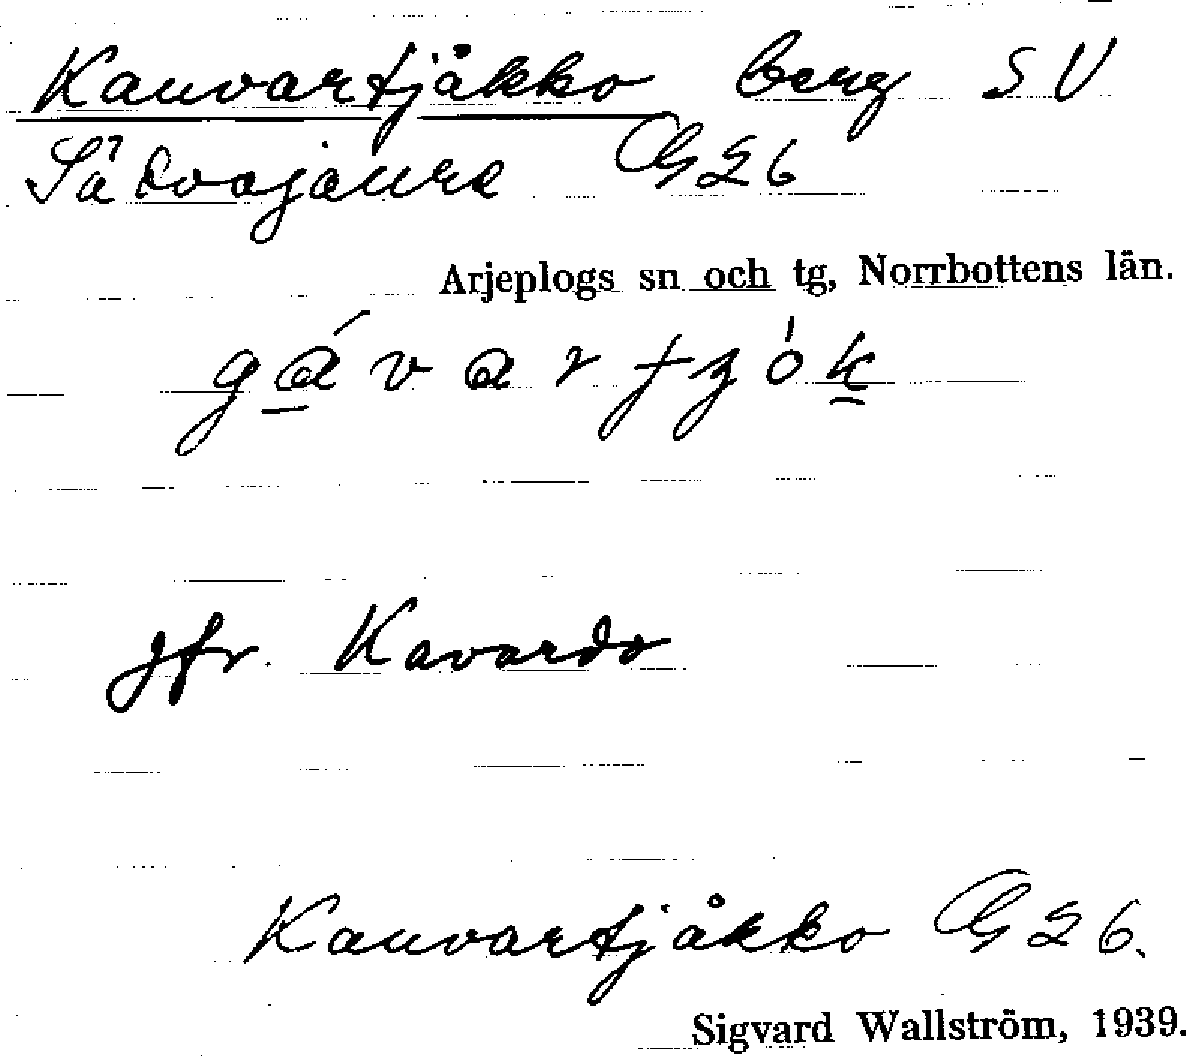 Kauvartjåkko berg SV
Jäkvajaure G26
Arjeplogs sn och tg, Norrbottens län.
gávartʒók
jfr. Kavardo
Kauvartjåkko G26.
Sigvard Wallström, 1939.